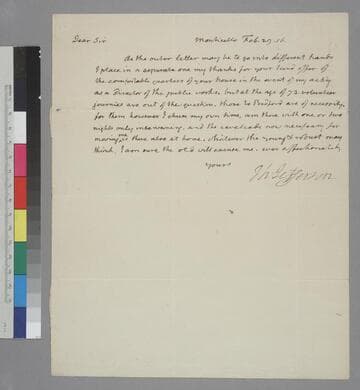 Dear Sir Monticello Feb. 29. 16.
As the outer letter may be to go into different hands
I place in a separate one my thanks for your kind offer of
the comfortable quarters of your house in the event of my acting
as a Director of the public works. but at the age of 72 voluntary
journies are out of the question. those to Bedford are of necessity.
for them however I chuse my own time, am there with one or two
nights only in
moving me there also at home. whatever the young & robust may
think, I am sure the old will excuse me. ever affectionately
yours
Th: Jefferson